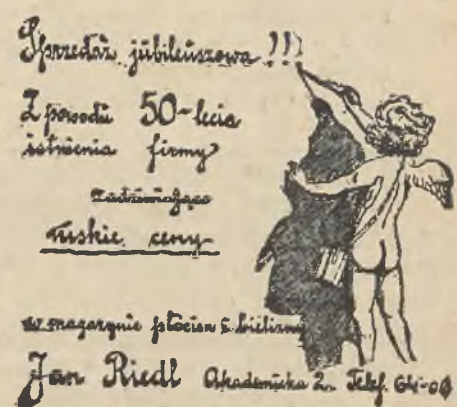 Sprzedaż jubileuszowa !!!
Z powodu 50-lecia
istnienia firmy
zadziwiająco
niskie ceny
w magazynie płócien i bielizny
Jan Riedl Akademicka 2. Telef. 64-00